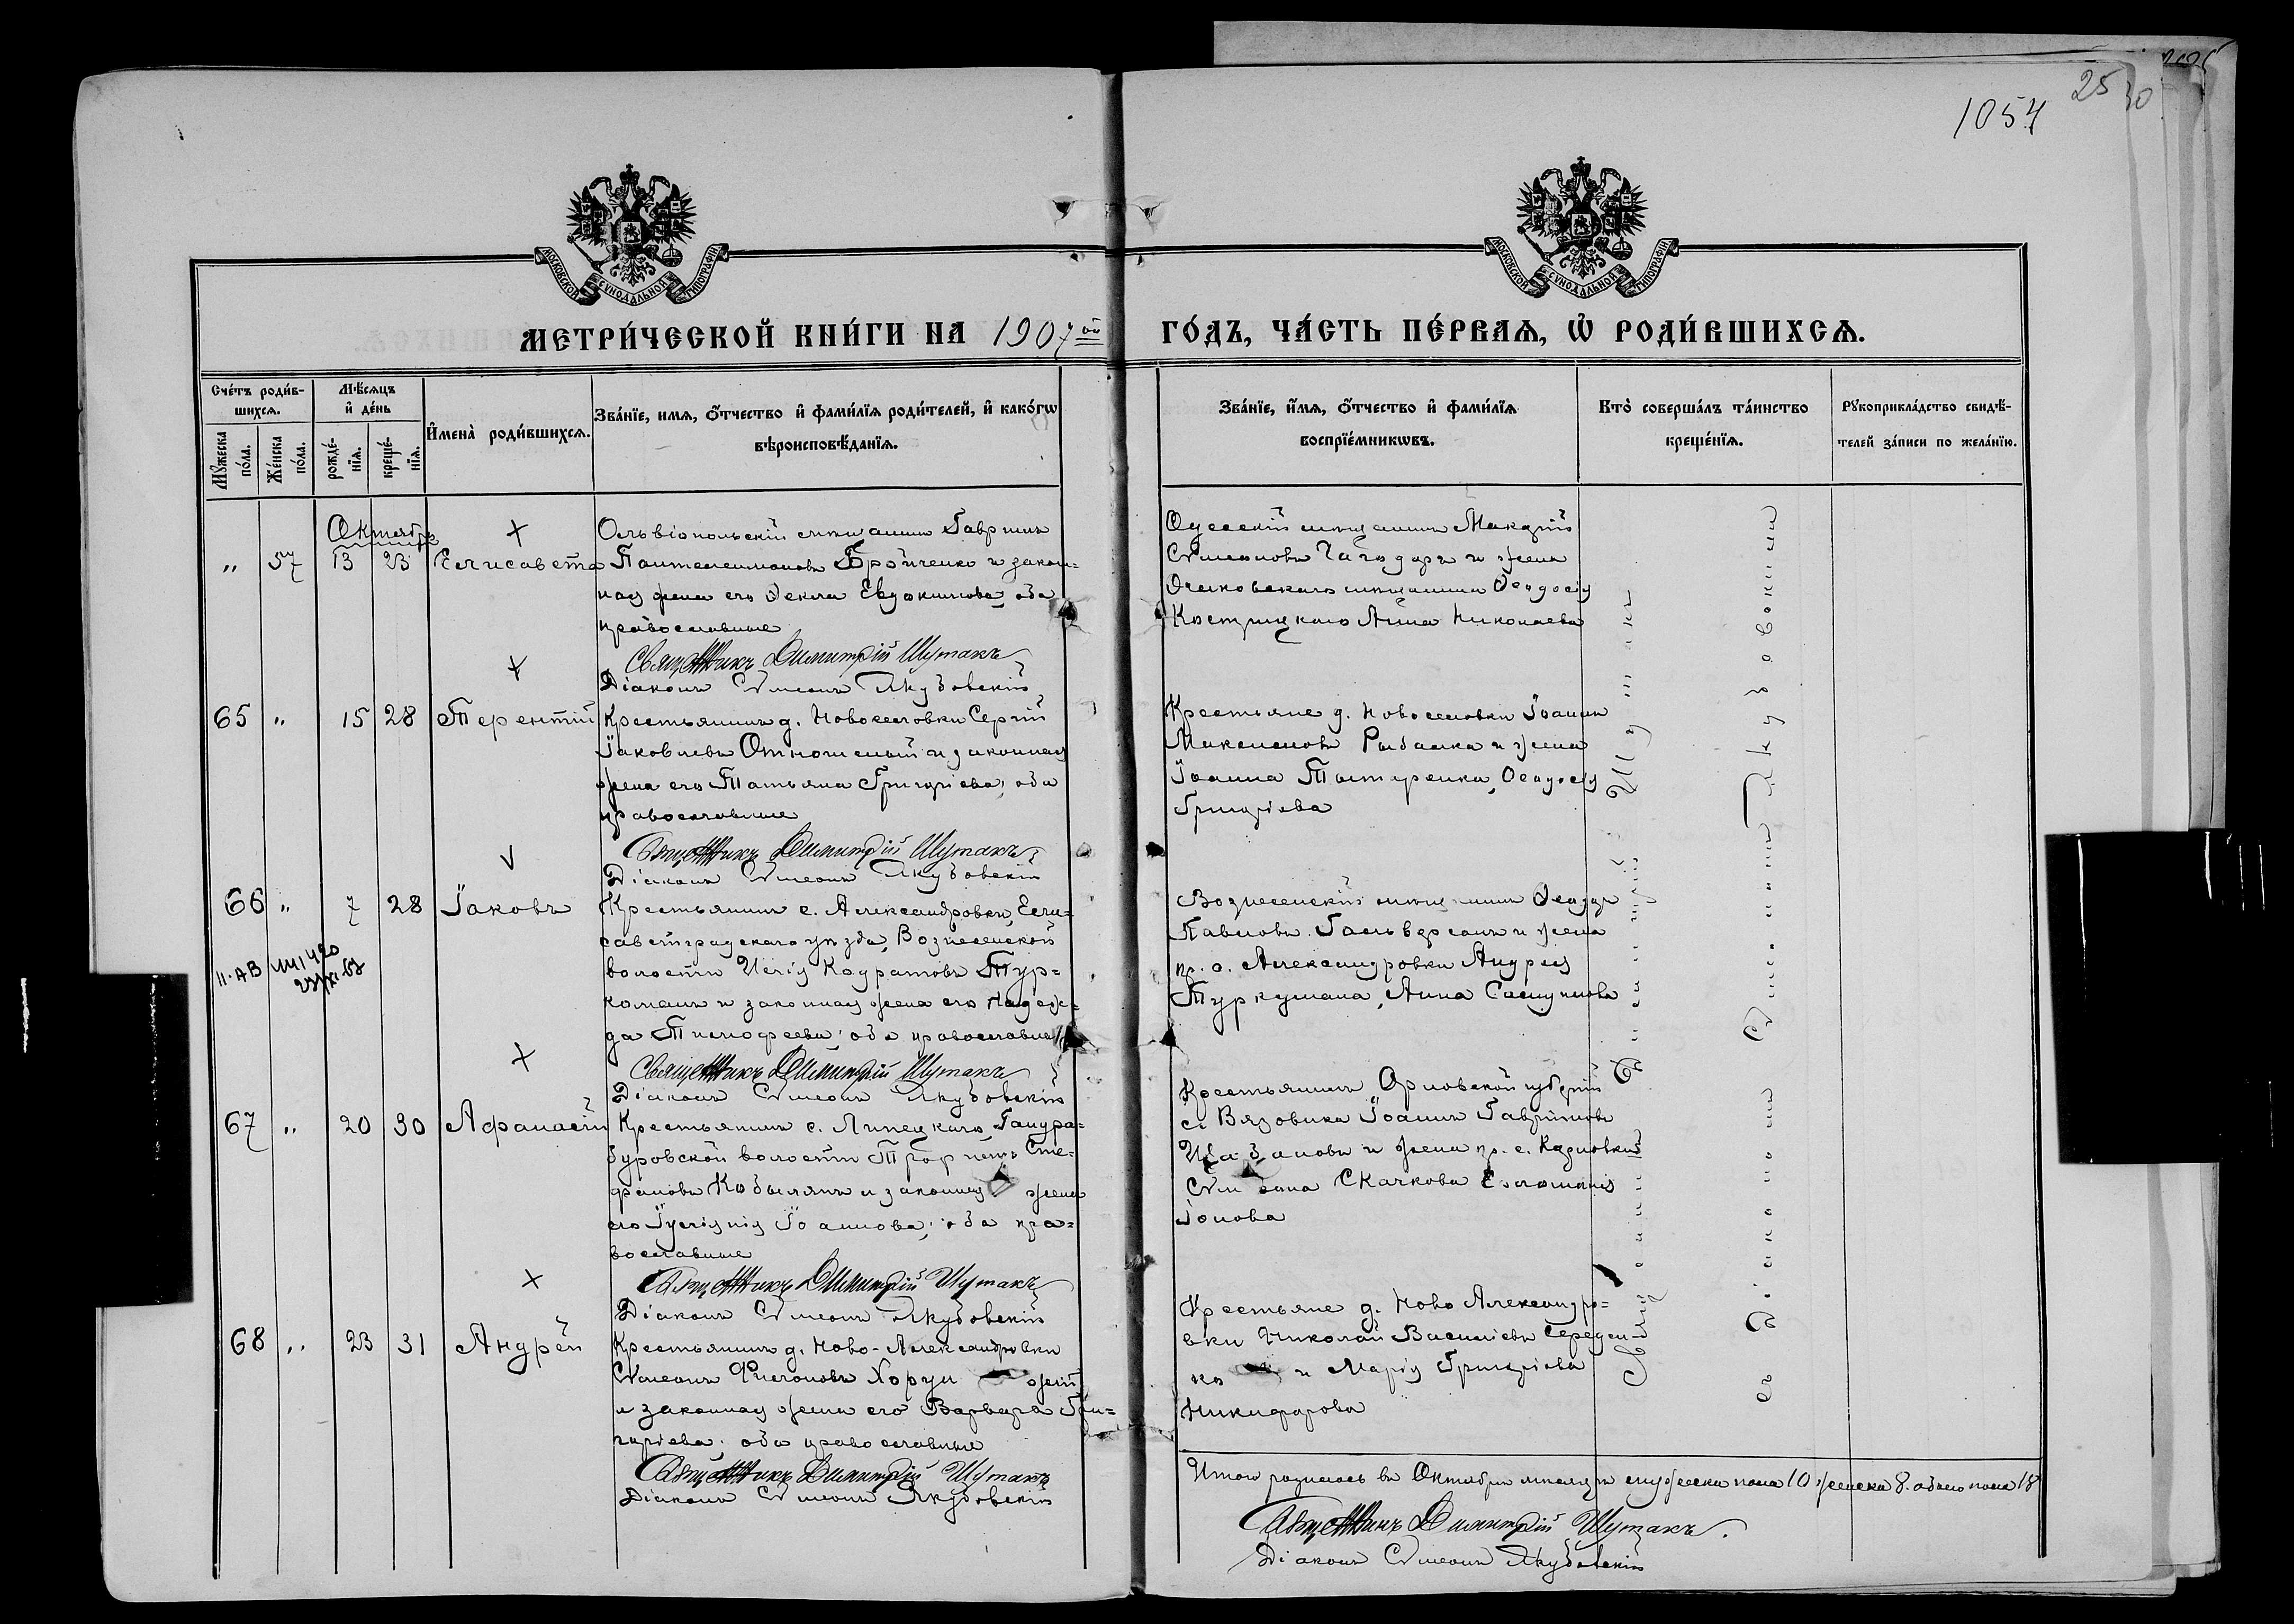 1054
25
МОСКОВСКОЙ СѴНОДАЛЬНОЙ ТИПОГРАФІИ
МОСКОВСКОЙ СѴНОДАЛЬНОЙ ТИПОГРАФІИ
МЕТРИ́ЧЕСКОЙ КНИ́ГИ НА 1907ой ГО́ДЪ, ЧА́СТЬ ПЕ́РВАѦ, Ѡ РОДИ́ВШИХСѦ.
Сче́тъ роди́в-
шихсѧ.
Мꙋжеска по́ла.
Же́нска по́ла.
Мѣ́сѧцъ
и҆ де́нь
рожде́-
нїѧ.
креще́-
нїѧ.
И҆мена̀ роди́вшихсѧ.
Зва́нїе, имѧ, ѻ҆́тчество и҆ фами́лїѧ роди́телей, и҆ како́гѡ
вѣроисповѣ́данїѧ.
Зва́нїе, и҆́мѧ, ѻ҆́тчество и҆ фами́лїѧ
воспрїе́мникѡвъ.
Кто̀ соверша́лъ та́инство
креще́нїѧ.
Рꙋкоприкла́дство свидѣ́-
телей за́писи по жела́нїю.
Октябрь
„ 57 13 23 Елисавета
Ольвіопольскій мѣщанинъ Гавріилъ
Пантелеимоновъ Бройченко и закон=
ная жена его Ѳекла Евдокимова, оба
православные
Священникъ Димитрій Шутакъ
Діаконъ Сѵмеонъ Якубовскій
Одесскій мѣщанинъ Макарій
Сѵмеоновъ Гайдаръ и жена
Очаковскаго мѣщанина Ѳеодосія
Кострицкаго Анна Николаева
65 „ 15 28 Терентій
Крестьянинъ д. Новоселовки Сергій
Іаковлевъ Отношеный и законная
жена его Татьяна Григоріева, оба
православные
Священникъ Димитрій Шутакъ
Діаконъ Сѵмеонъ Якубовскій
Крестьяне д. Новоселовки Іоаннъ
Рыбалка и жена
Іоанна Ѳеодосія
Григоріева
66 „ 7 28 Іаковъ
Крестьянинъ с. Александровки, Ели=
саветградскаго уѣзда, Вознесенской
волости Илія Кодратовъ Тур=
команъ и законная жена его Надеж=
да Тимофеева, оба православные
Священникъ Димитрій Шутакъ
Діаконъ Сѵмеонъ Якубовскій
Вознесенскій мѣщанинъ Ѳеодоръ
Павловъ и жена
кр. с. Александровки Андрея
Туркумана, Анна
II-АВ
67 „ 20 30 Афанасій
Крестьянинъ с. Липецкаго, Гандра=
буровской волости Трофимъ Сте=
фановъ Кобылянъ и законная жена
его Іуліанія Іоаннова, оба пра=
вославные
Священникъ Димитрій Шутакъ
Діаконъ Сѵмеонъ Якубовскій
Крестьянинъ Орловской губерніи
с. Вязовика Іоаннъ Гавріиловъ
Шабановъ и жена кр. с. Карловки
Сѵмеона Скачкова
Іонова
68 „ 23 31 Андрей
Крестьянинъ д. Ново-Александровки
Сѵмеонъ Филоновъ Хорун жій
и законная жена его Варвара Гри=
горіева, оба православные
Священникъ Димитрій Шутакъ
Діаконъ Сѵмеонъ Якубовскій
Крестьяне д. Ново Александро=
вки Николай Василіевъ Середен
ко и Марія Григоріева
Никифорова
Священникъ Димитрій Шутакъ
съ Діакономъ Сѵмеономъ Якубовскимъ
Итого родилось въ Октябрѣ мѣсяцѣ мужеска пола 10 женска 8. обоего пола 18
Священникъ Димитрій Шутакъ.
Діаконъ Сѵмеонъ Якубовскій